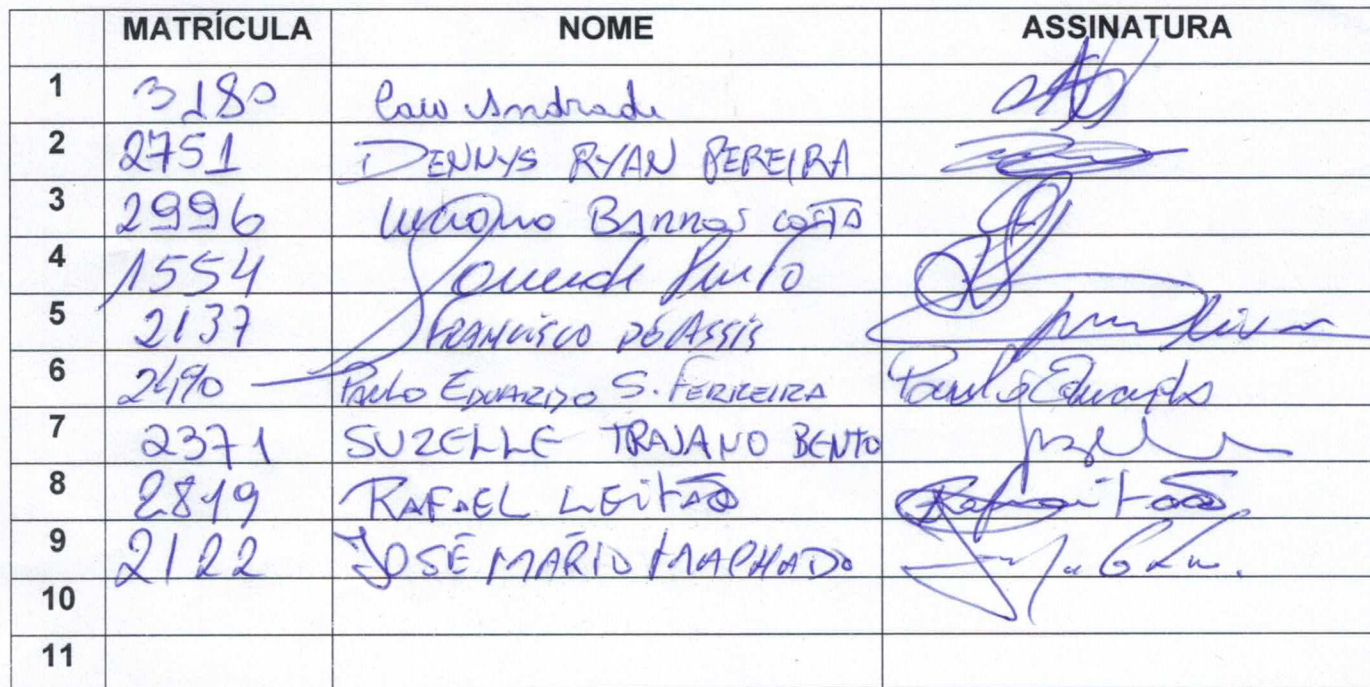 MATRÍCULA NOME ASSINATURA
1 3180 Caio Andrade
2 2751 DENNYS RYAN PEREIRA
3 2996 Luciano BARROS COSTA
4 1554
5 2137 FRANCISCO DE ASSIS
6 2490 PAULO EDUARDO S. FERREIRA Paulo Eduardo
7 2371 SUZELLE TRAJANO BENTO
8 2819 RAFAEL LEITÃO
9 2122 JOSÉ MÁRIO MACHADO
10
11